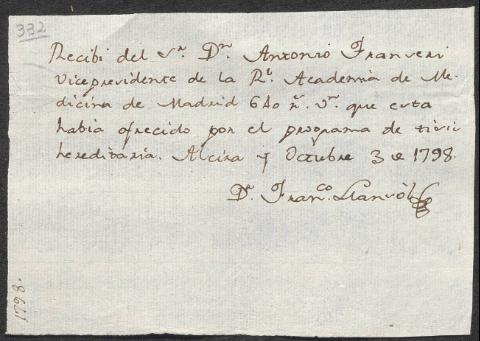 332
Recibi del Sr. Dn. Antonio Franseri
Vicepresidente de la Rl. Academia de Me-
dicina de Madrid 640 rs. vn. que esta
habia ofrecido por el programa de tisis
hereditaria. Alcira y Octubre 3 de 1798.
Dr. Franco. Llansòl
1798.